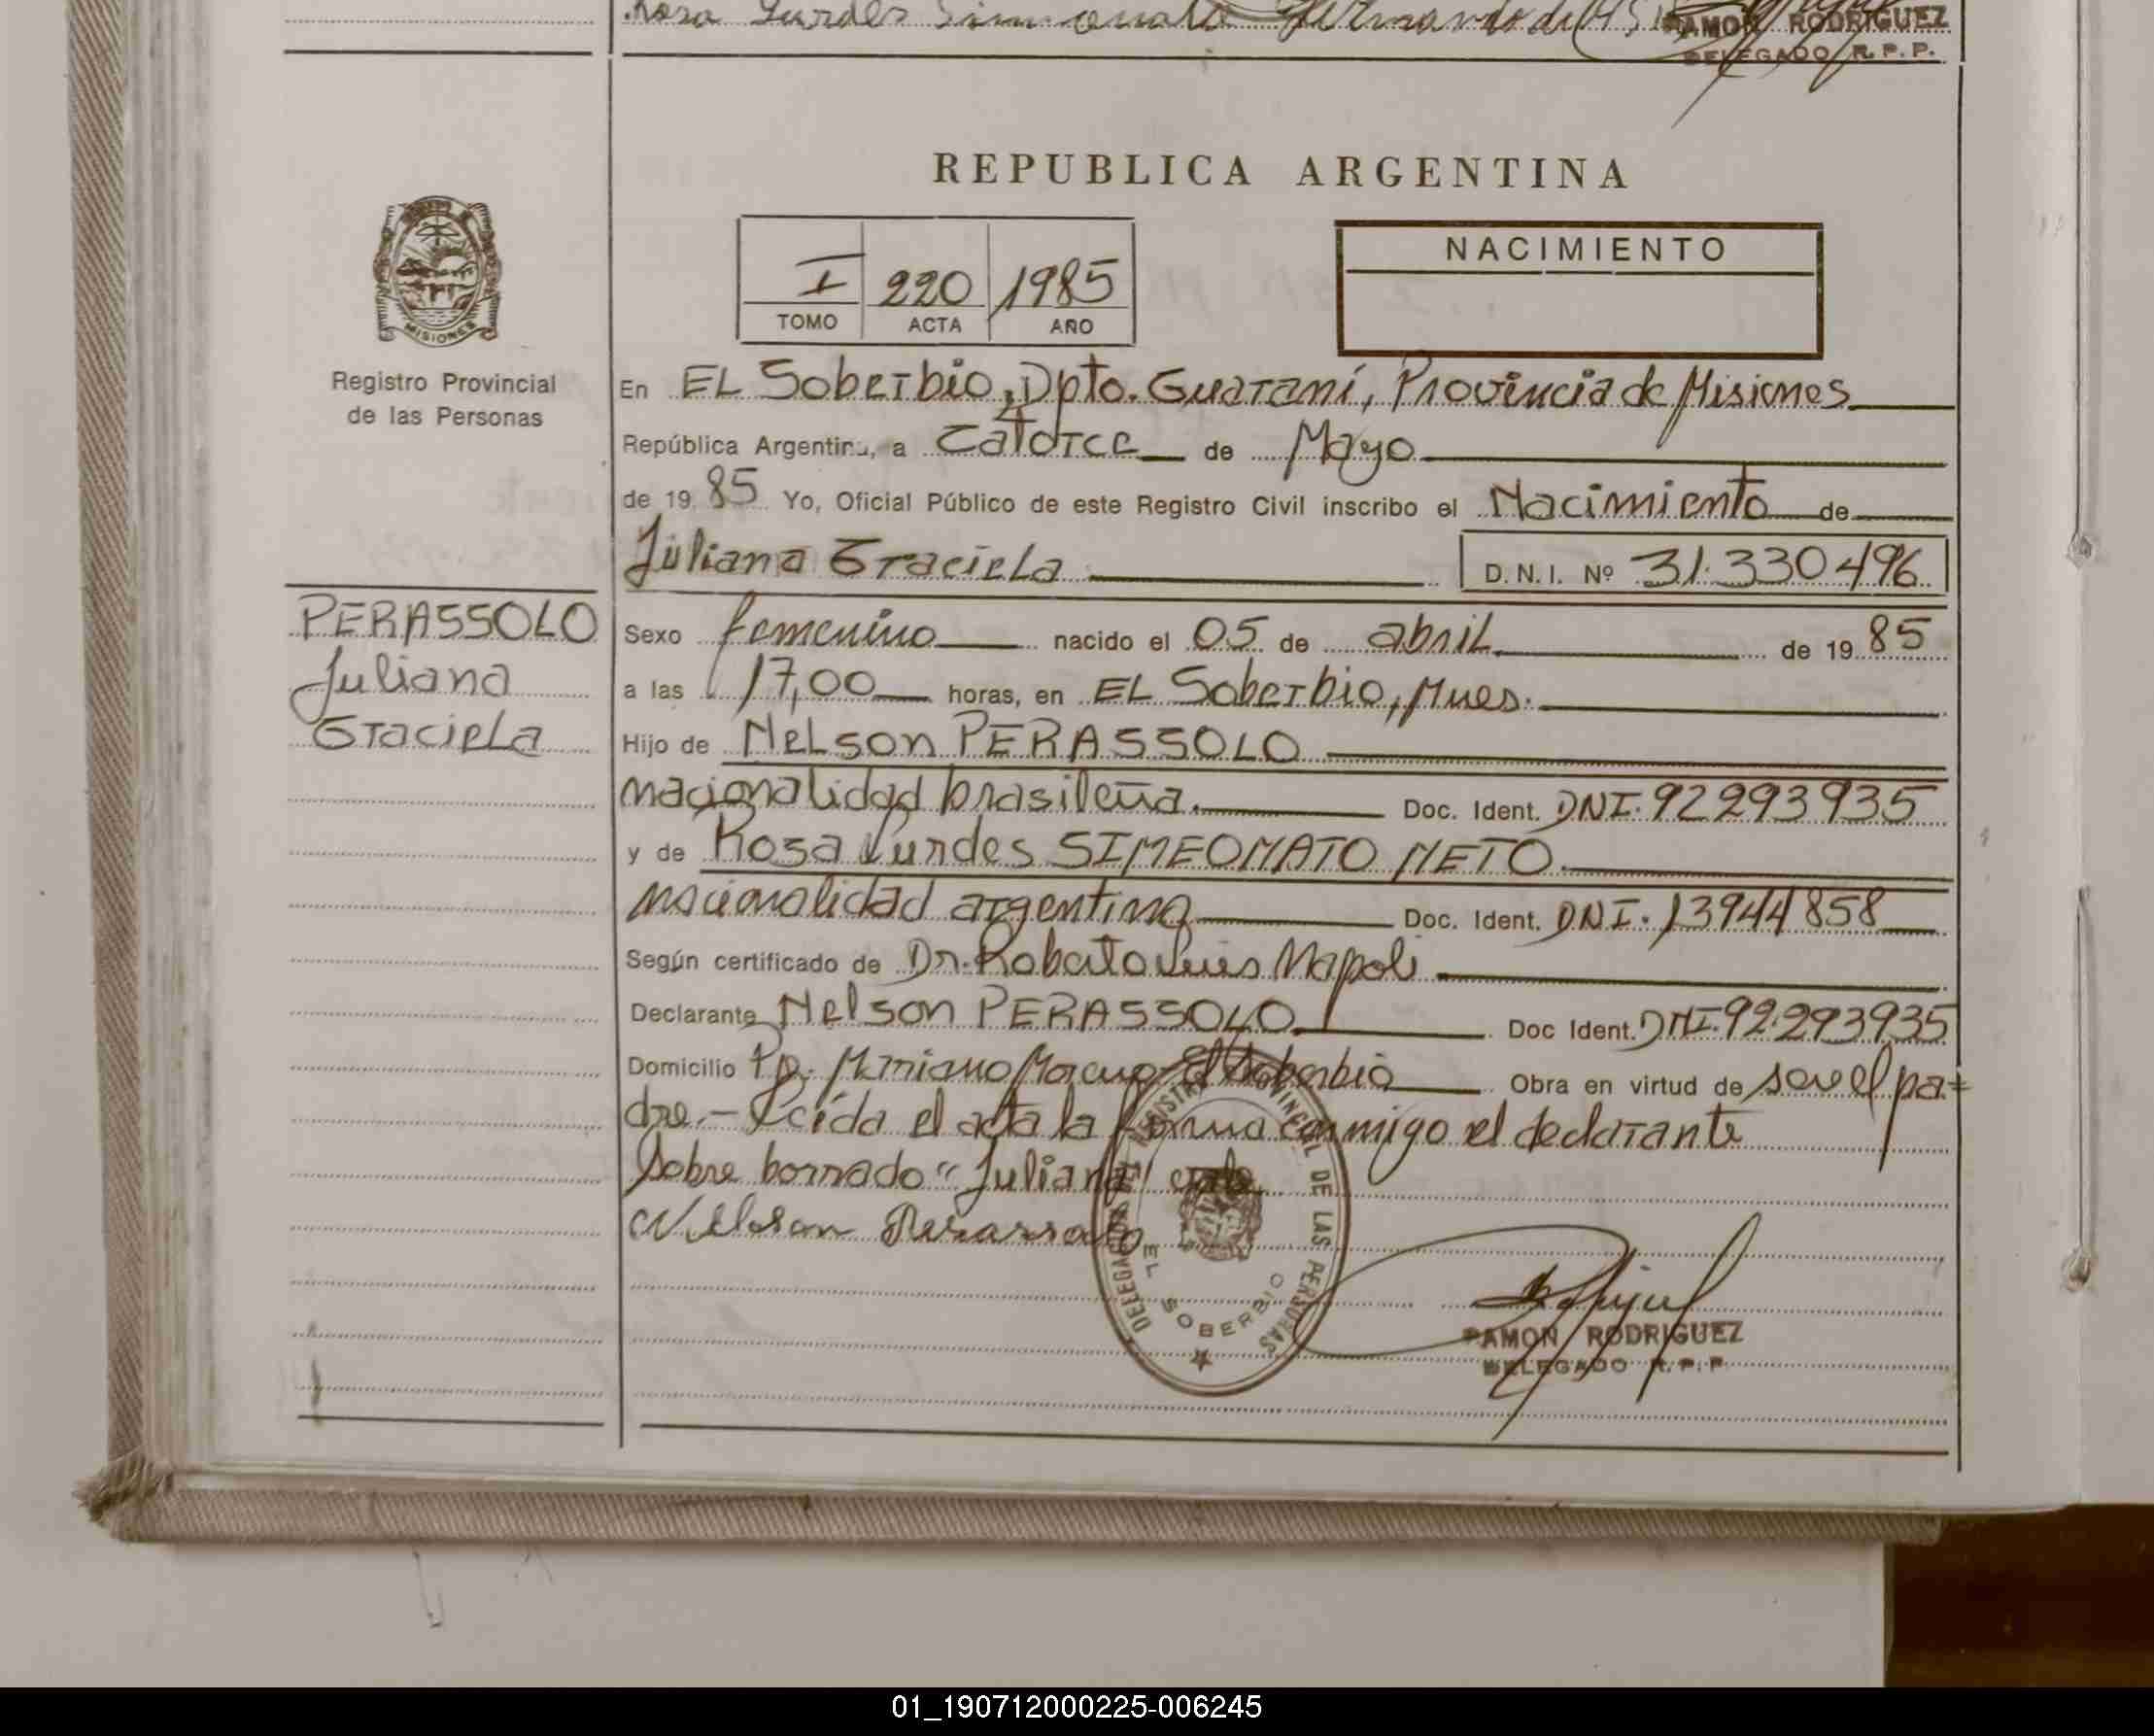 Rosa Lurdes
RAMON RODRIGUEZ
DELEGADO R.P.P.
REPUBLICA ARGENTINA
I 220 1985
TOMO ACTA AÑO
NACIMIENTO
MISIONES
Registro Provincial
de las Personas
En EL Soberbio, Dpto. Guaraní, Provincia de Misiones
República Argentina, a Catorce de Mayo
de 19 85 Yo, Oficial Público de este Registro Civil inscribo el Nacimiento de
Juliana Graciela D.N.I. Nº 31.330496
PERASSOLO
Juliana
Graciela
Sexo femenino nacido el 05 de abril de 19 85
a las 17,00 horas, en EL Soberbio, Mnes.
Hijo de Nelson PERASSOLO
nacionalidad brasileña. Doc. Ident. DNI. 92293935
y de Rosa Lurdes SIMEONATO NETO.
nacionalidad argentina Doc. Ident. DNI. 13944858
Según certificado de Dr. Roberto Luis Napoli
Declarante Nelson PERASSOLO Doc Ident. DNI. 92.293935
Domicilio Pp. Mariano Moreno El Soberbio Obra en virtud de ser el pa=
dre.- Leída el acta la firma conmigo el declarante
Sobre borrado "Juliana" vale
Nelson Perassolo
DELEGACION REGISTRO PROVINCIAL DE LAS PERSONAS
EL SOBERBIO
RAMON RODRIGUEZ
DELEGADO R.P.P
01_190712000225-006245